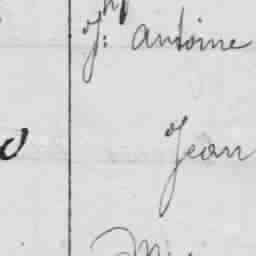 Jh: Antoine
Jean